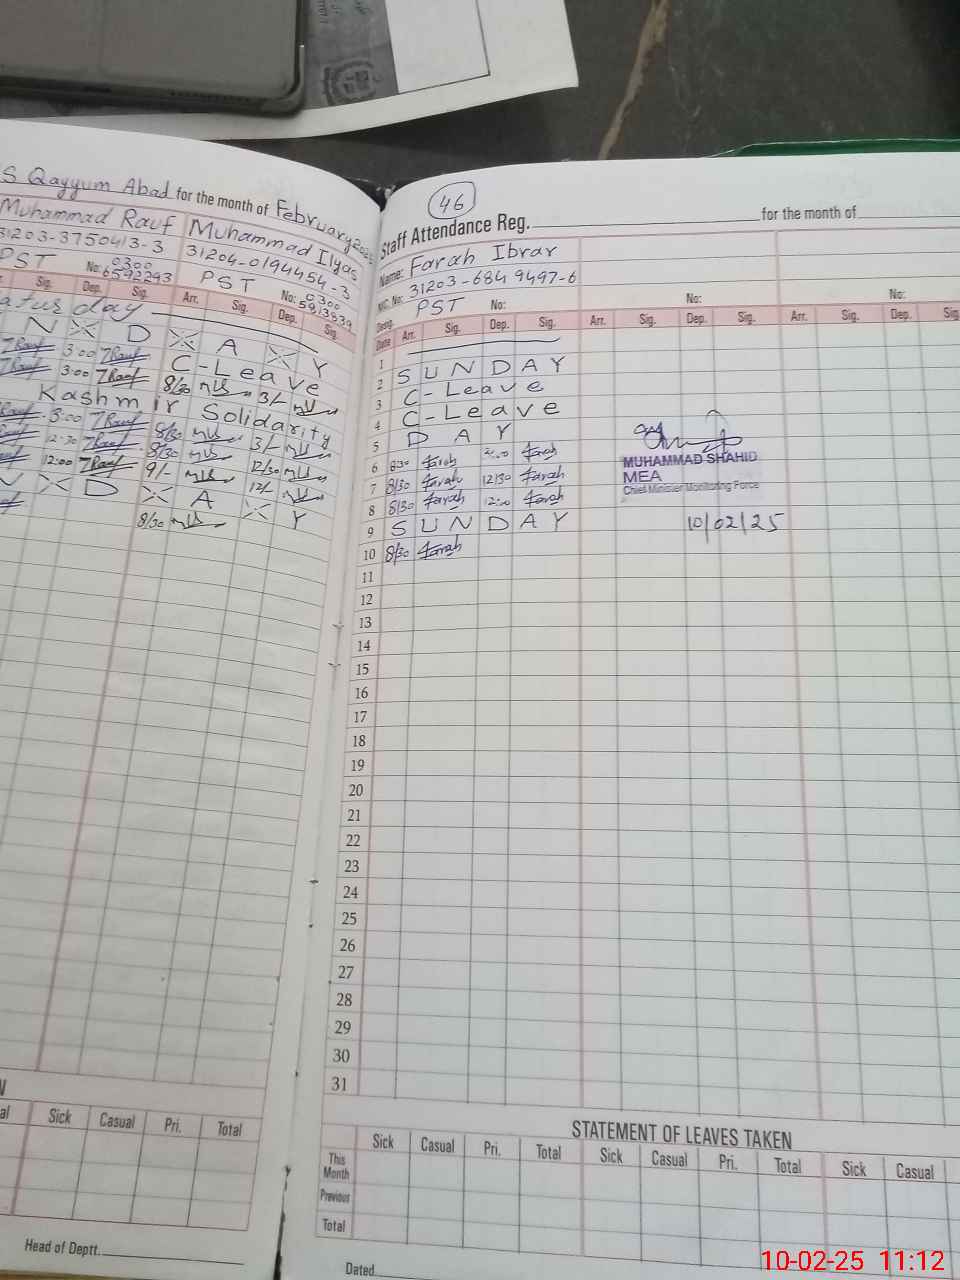 S Qayyum Abad for the month of February
Muhammad Rauf Muhammad Ilyas
31203-3750413-3 31204-0194454-3
PST No: 0300 6592293 PST No: 0300 5913839
Sig. Dep. Sig. Arr. Sig. Dep. Sig.
atur day
N D A Y
7Rauf 3:00 7Rauf C-Leave
7Rauf 3:00 7Rauf 8/30 3/-
Kashmir Solidarity
Rauf 3:00 7Rauf 8/30 3/-
12:30 7Rauf 8/30 12/30
12:00 7Rauf 9/- 12/-
D A Y
8/30
al Sick Casual Pri. Total
Head of Deptt.
46
Staff Attendance Reg. for the month of
Name: Farah Ibrar
N.I.C. No: 31203-6849497-6
Desig: PST No: No: No:
Date Arr. Sig. Dep. Sig. Arr. Sig. Dep. Sig. Arr. Sig. Dep. Sig
1
2 SUNDAY
3 C-Leave
4 C-Leave
5 DAY
6 8:30 Farah Farah
7 8/30 Farah 12/30 Farah
8 8/30 Farah 12:00 Farah
9 SUNDAY
10 8/30 Farah
11
12
13
14
15
16
17
18
19
20
21
22
23
24
25
26
27
28
29
30
31
MUHAMMAD SHAHID
MEA
Chief Minister Monitoring Force
10/02/25
STATEMENT OF LEAVES TAKEN
Sick Casual Pri. Total Sick Casual Pri. Total Sick Casual
This Month
Previous
Total
Dated
10-02-25 11:12